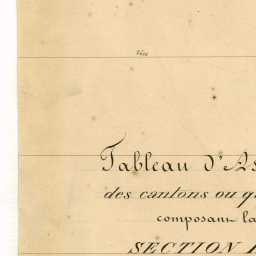 Tableau d'As
des cantons ou q
composant la
SECTION